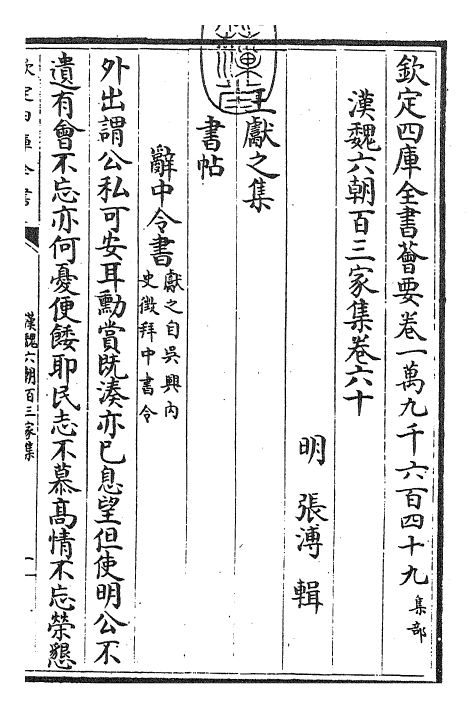 欽定四庫全書薈要卷一萬九千六百四十九 集部
漢魏六朝百三家集卷六十
明 張溥 輯
王獻之集
書帖
辭中令書 獻之自吳興內史徵拜中書令
外出謂公私可安耳勳賞既湊亦已息望但使明公不
遺有會不忘亦何憂便餧耶民志不慕高情不忘榮懇
漢魏六朝百三家集
一